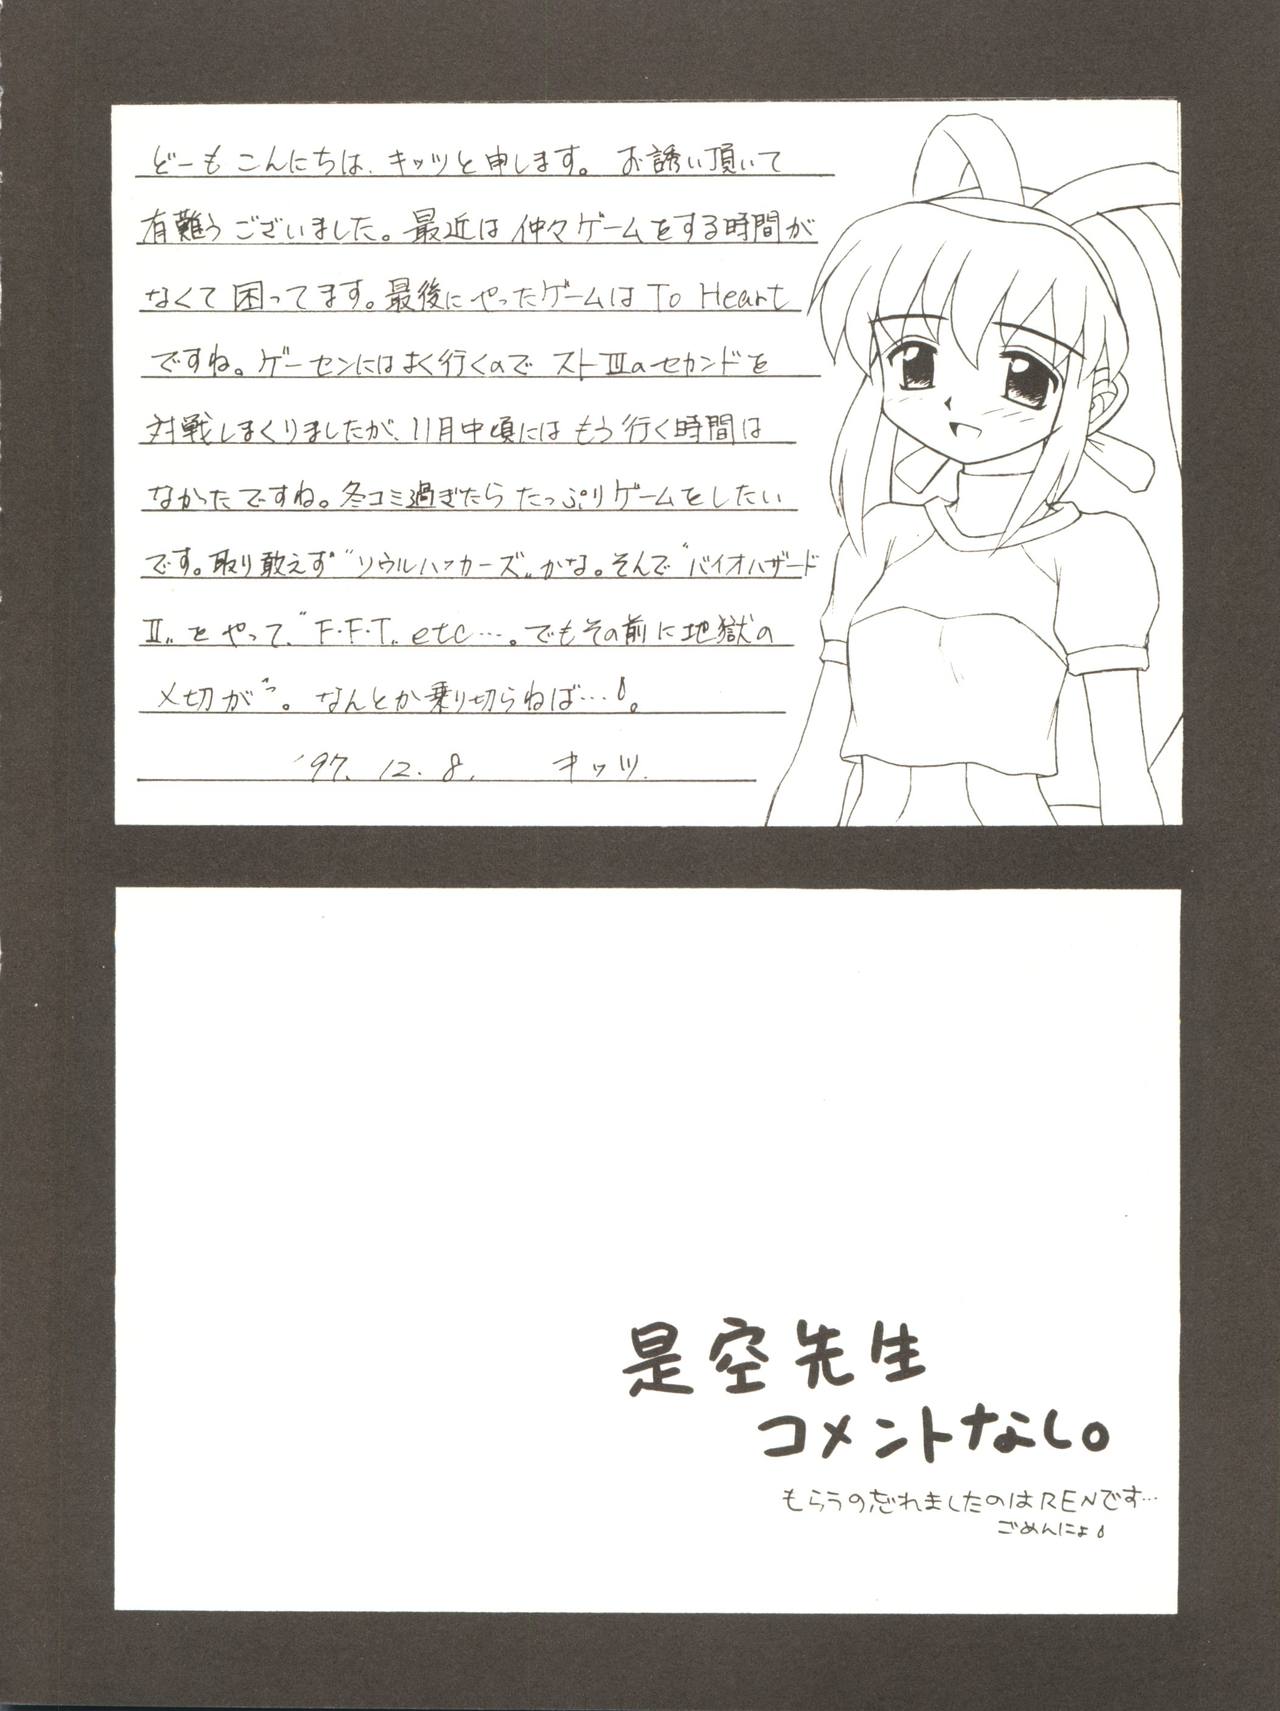 どーもこんにちは、キッツと申します。お誘い頂いて
有難うございました。最近は仲々ゲームをする時間が
なくて困ってます。最後にやったゲームはTo Heart
ですね。ゲーセンにはよく行くのでストⅢのセカンドを
対戦しまくりましたが、11月中頃にはもう行く時間は
なかったですね。冬コミ過ぎたらたっぷりゲームをしたい
です。取り敢えず"ソウルハッカーズ"かな。そんで"バイオハザード
Ⅱ"をやって、"F・F・T" etc…。でもその前に地獄の
〆切がっ。なんとか乗り切らねば…。
'97. 12. 8. キッツ.
是空先生
コメントなし。
もらうの忘れましたのはRENです…
ごめんにょ